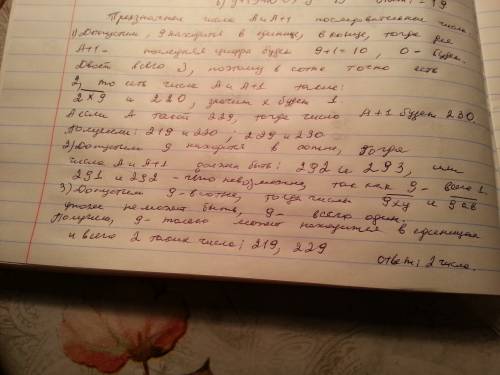 Трехзначное число А и А+1 последовательные числа.
1) Допустим, 9 находится в единице, в конце, тогда для
А+1 - последняя цифра будет 9+1=10, 0 - будет.
всего 3, поэтому в сотне точно есть
2, то есть числа А и А+1 такие:
2x9 и 220, значит x будет 1.
А если А такой 229, тогда число А+1 будет 230.
Получили: 219 и 220; 229 и 230
2) Допустим 9 находится в сотне, тогда
числа А и А+1 должна быть: 292 и 293, или
291 и 292 - невозможно, так как 9 - всего 1.
3) Допустим 9 в сотне, тогда числы 9xy и 9ab
тоже не может быть, 9 - всего один.
Получили, 9 - только может находится в единицах
и всего 2 таких числа: 219, 229
ответ: 2 числа.